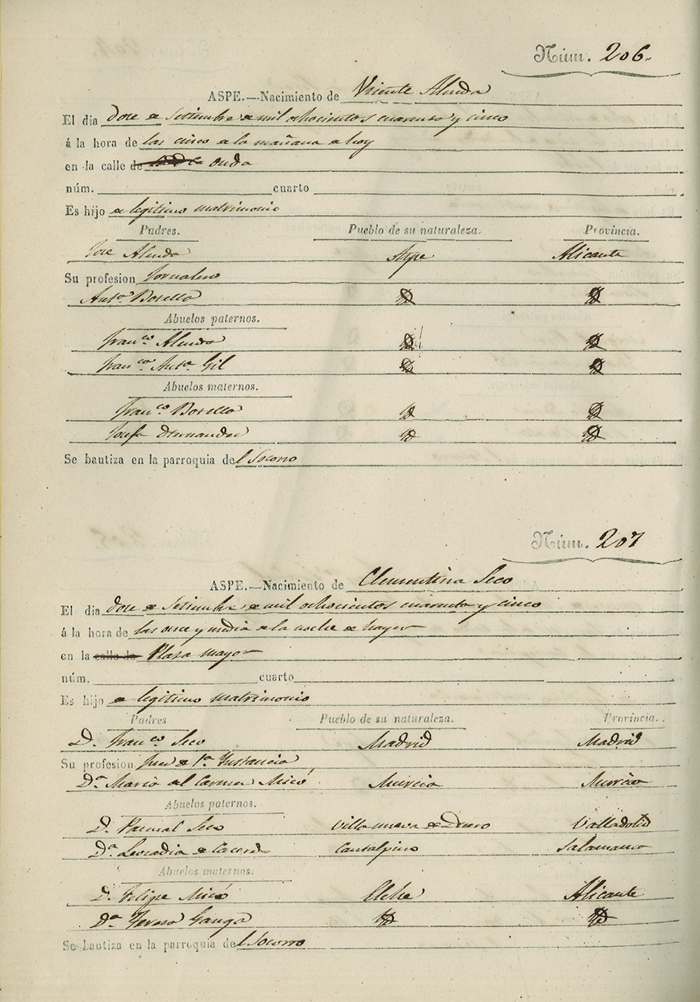 Núm. 206.
ASPE.—Nacimiento de Vicente Alenda
El dia doce de Setiembre de mil ochocientos cuarenta y cinco
á la hora de las cinco de la mañana de hoy
en la calle de Onda
núm. cuarto
Es hijo de legitimo matrimonio
Padres. Pueblo de su naturaleza. Provincia.
Jose Alenda Aspe Alicante
Su profesion Jornalero
Antª Botella Id Id
Abuelos paternos.
Franco Alenda Id Id
Franca Antª Gil Id Id
Abuelos maternos.
Franco Botella Id Id
Josefa Hernandez Id Id
Se bautiza en la parroquia del Socorro
Núm. 207
ASPE.—Nacimiento de Clementina Seco
El dia doce de Setiembre de mil ochocientos cuarenta y cinco
á la hora de las once y media de la noche de
en la calle de Plaza mayor
núm. cuarto
Es hijo de legitimo matrimonio
Padres Pueblo de su naturaleza. Provincia.
D. Franco Seco Madrid Madrid
Su profesion Juez de 1ª Instancia
Dª Maria del Carmen Micó Murcia Murcia
Abuelos paternos.
D. Pascual Seco Villanueva de Duero Valladolid
Dª Leocadia de Cantalpino Salamanca
Abuelos maternos.
D. Felipe Micó Elche Alicante
Dª Teresa Ganga Id Id
Se bautiza en la parroquia del Socorro